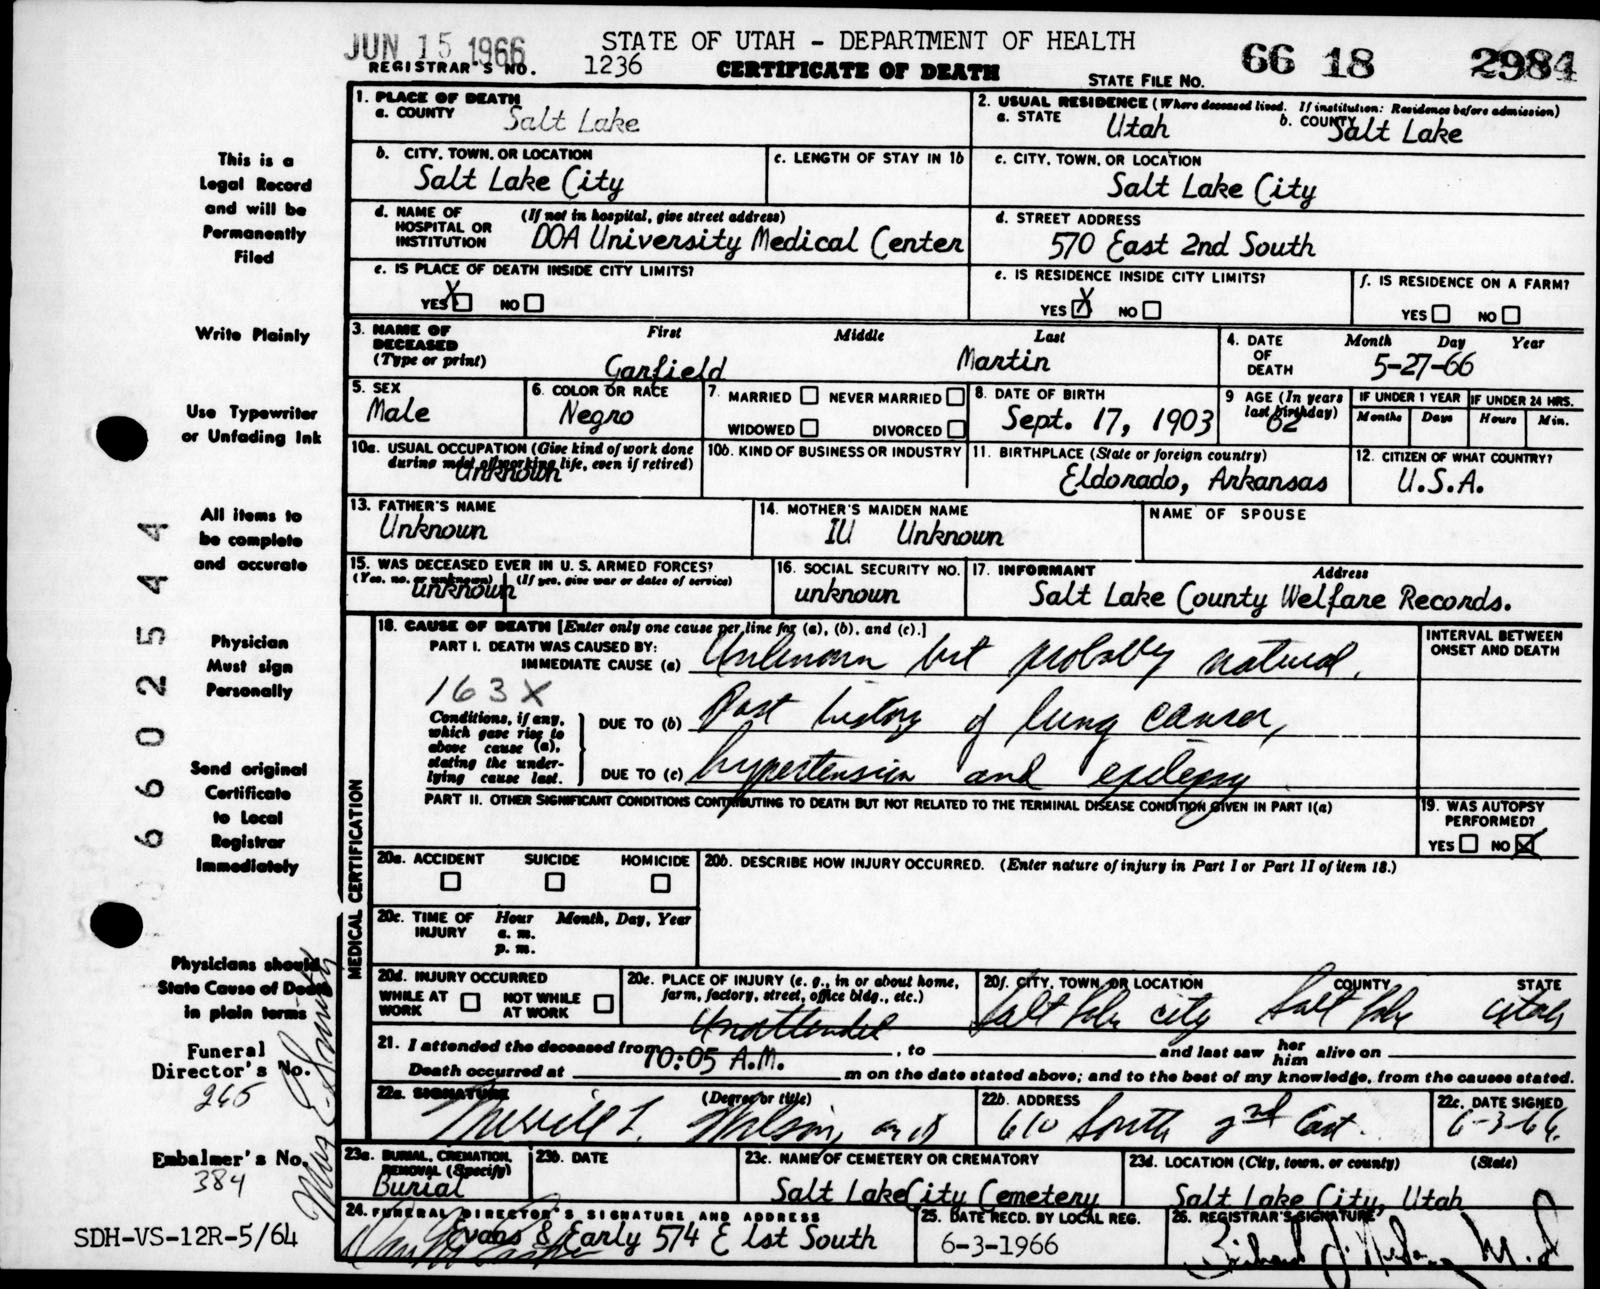 JUN 15 1966
STATE OF UTAH - DEPARTMENT OF HEALTH
66 18 2984
REGISTRAR'S NO. 1236
CERTIFICATE OF DEATH
STATE FILE NO.
1. PLACE OF DEATH
a. COUNTY Salt Lake
2. USUAL RESIDENCE (Where deceased lived. If institution: Residence before admission)
a. STATE Utah b. COUNTY Salt Lake
b. CITY, TOWN, OR LOCATION
Salt Lake City
c. LENGTH OF STAY IN 1b
c. CITY, TOWN, OR LOCATION
Salt Lake City
d. NAME OF HOSPITAL OR INSTITUTION (If not in hospital, give street address)
DOA University Medical Center
d. STREET ADDRESS
570 East 2nd South
e. IS PLACE OF DEATH INSIDE CITY LIMITS?
YES X NO
e. IS RESIDENCE INSIDE CITY LIMITS?
YES X NO
f. IS RESIDENCE ON A FARM?
YES NO
3. NAME OF DECEASED (Type or print)
First Middle Last
Garfield Martin
4. DATE OF DEATH Month Day Year
5-27-66
5. SEX
Male
6. COLOR OR RACE
Negro
7. MARRIED NEVER MARRIED
WIDOWED DIVORCED
8. DATE OF BIRTH
Sept. 17, 1903
9 AGE (In years last birthday)
62
IF UNDER 1 YEAR
Months Days
IF UNDER 24 HRS.
Hours Min.
10a. USUAL OCCUPATION (Give kind of work done during most of working life, even if retired)
Unknown
10b. KIND OF BUSINESS OR INDUSTRY
11. BIRTHPLACE (State or foreign country)
Eldorado, Arkansas
12. CITIZEN OF WHAT COUNTRY?
U.S.A.
13. FATHER'S NAME
Unknown
14. MOTHER'S MAIDEN NAME
IU Unknown
NAME OF SPOUSE
15. WAS DECEASED EVER IN U. S. ARMED FORCES?
(Yes, no, or unknown) (If yes, give war or dates of service)
unknown
16. SOCIAL SECURITY NO.
unknown
17. INFORMANT Address
Salt Lake County Welfare Records.
MEDICAL CERTIFICATION
18. CAUSE OF DEATH [Enter only one cause per line for (a), (b), and (c).]
INTERVAL BETWEEN ONSET AND DEATH
PART I. DEATH WAS CAUSED BY:
IMMEDIATE CAUSE (a) Unknown but probably natural.
163X
Conditions, if any, which gave rise to above cause (a), stating the underlying cause last.
DUE TO (b) Past history of lung cancer,
DUE TO (c) hypertension and epilepsy
PART II. OTHER SIGNIFICANT CONDITIONS CONTRIBUTING TO DEATH BUT NOT RELATED TO THE TERMINAL DISEASE CONDITION GIVEN IN PART I(a)
19. WAS AUTOPSY PERFORMED?
YES NO X
20a. ACCIDENT SUICIDE HOMICIDE
20b. DESCRIBE HOW INJURY OCCURRED. (Enter nature of injury in Part I or Part II of item 18.)
20c. TIME OF INJURY Hour Month, Day, Year
a. m.
p. m.
20d. INJURY OCCURRED
WHILE AT WORK NOT WHILE AT WORK
20e. PLACE OF INJURY (e. g., in or about home, farm, factory, street, office bldg., etc.)
20f. CITY, TOWN, OR LOCATION COUNTY STATE
Salt Lake City Salt Lake Utah
Unattended
21. I attended the deceased from , to and last saw her him alive on
Death occurred at 10:05 A.M. m on the date stated above; and to the best of my knowledge, from the causes stated.
22a. SIGNATURE (Degree or title)
Merrill L. Wilson, MD
22b. ADDRESS
610 South 2nd East.
22c. DATE SIGNED
6-3-66.
23a. BURIAL, CREMATION, REMOVAL (Specify)
Burial
23b. DATE
23c. NAME OF CEMETERY OR CREMATORY
Salt Lake City Cemetery
23d. LOCATION (City, town, or county) (State)
Salt Lake City, Utah
24. FUNERAL DIRECTOR'S SIGNATURE AND ADDRESS
Evans & Early 574 E 1st South
25. DATE RECD. BY LOCAL REG.
6-3-1966
26. REGISTRAR'S SIGNATURE
M.D
This is a
Legal Record
and will be
Permanently
Filed
Write Plainly
Use Typewriter
or Unfading Ink
All items to
be complete
and accurate
Physician
Must sign
Personally
Send original
Certificate
to Local
Registrar
Immediately
Physicians should
State Cause of Death
in plain terms
Funeral
Director's No.
265
Embalmer's No.
384
660025544
SDH-VS-12R-5/64